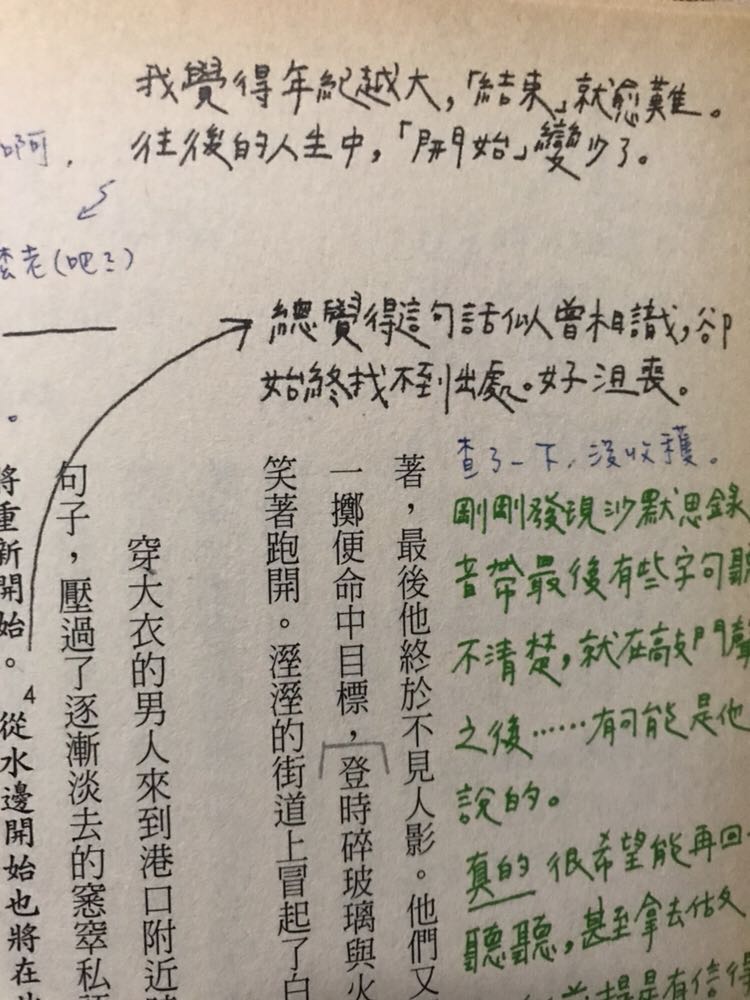 我覺得年紀越大,「結束」就愈難。
往後的人生中,「開始」變少了。
啊,
老(吧?)
總覺得這句話似曾相識,卻
始終找不到出處。好沮喪。
查了一下,沒收穫。
剛剛發現沙默思錄
音帶最後有些字句聽
不清楚,就在敲門聲
之後……有可能是他
說的。
真的 很希望能再回
聽聽,甚至拿去估
是有信得
著,最後他終於不見人影。他們又
一擲便命中目標,登時碎玻璃與火
笑著跑開。溼溼的街道上冒起了白
穿大衣的男人來到港口附近
句子,壓過了逐漸淡去的窸窣私
。4從水邊開始也將在
將重新開始。